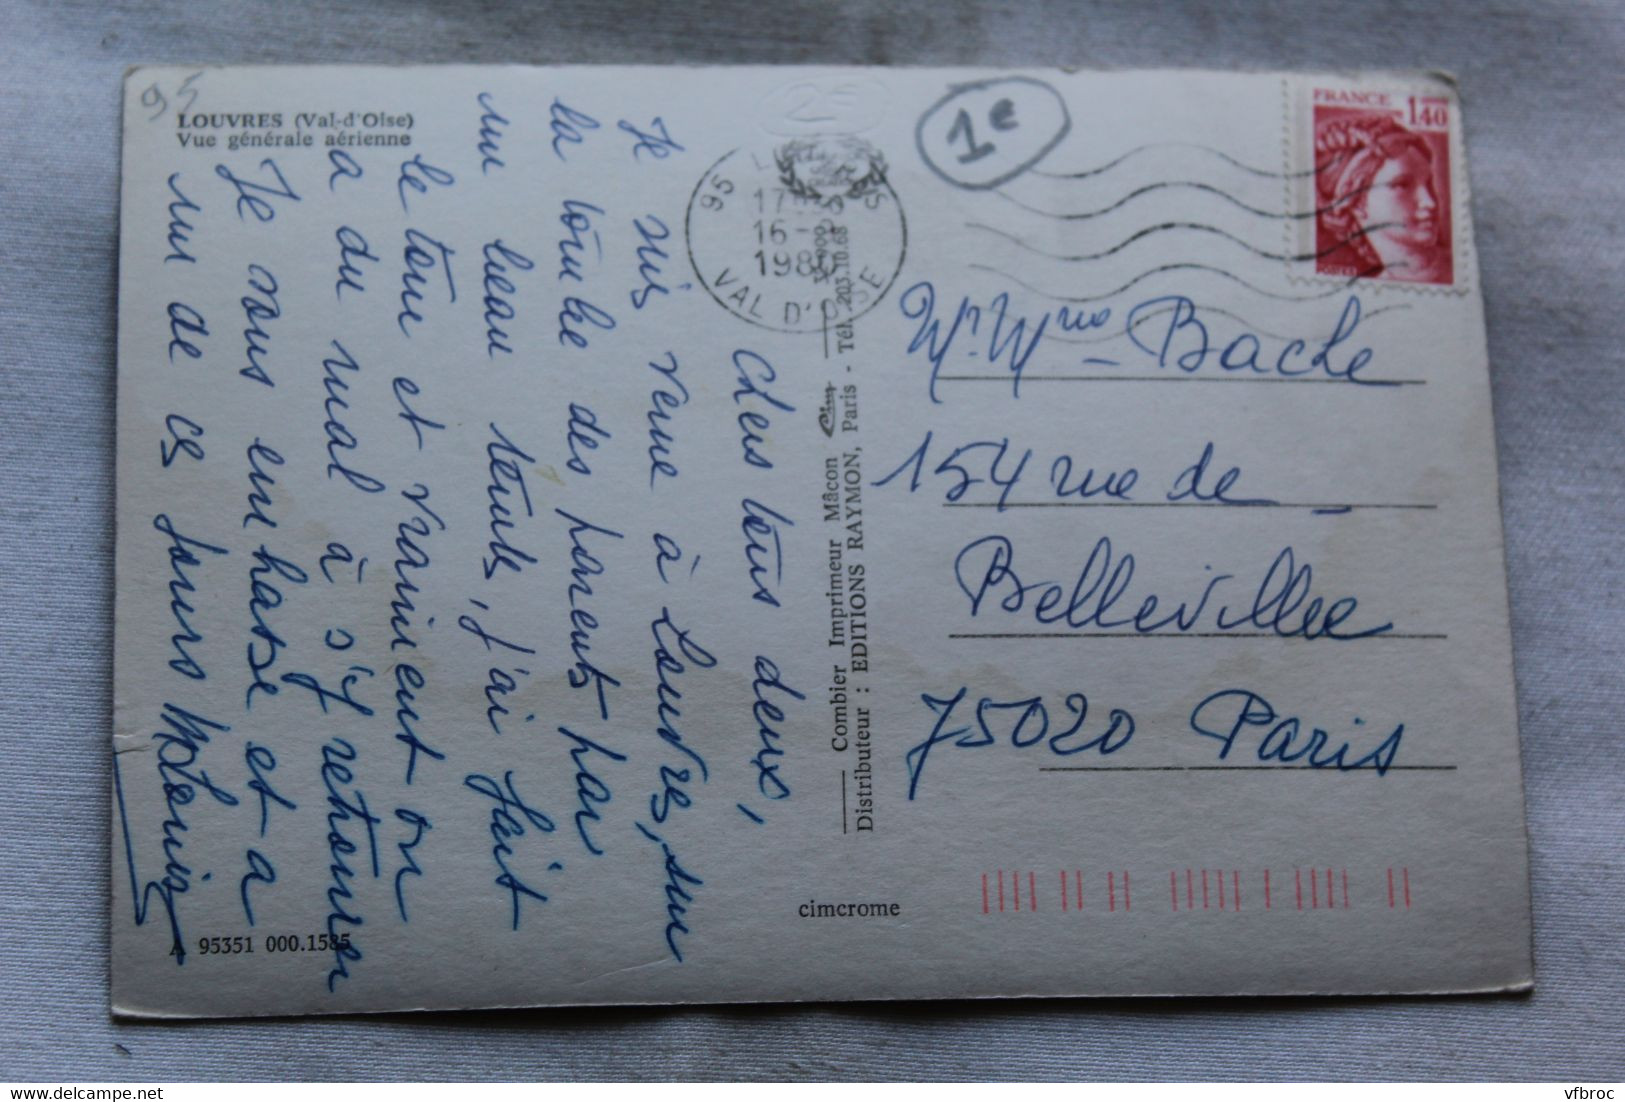 95
LOUVRES (Val-d'Oise)
Vue générale aérienne
Chers tous deux,
Je suis venue à Louvres, sur
la tombe des parents par
un beau temps, j'ai fait
le tour et vraiment on
a du mal à s'y retrouver
Je vous embrasse et a
un de ces jours
A 95351 000.1585
Combier Imprimeur Mâcon Cim
Distributeur : EDITIONS RAYMON, Paris - Tél. 203.10.68
cimcrome
2€
1€
95
16-
VAL D'OISE
FRANCE
1,40
POSTES
Mr. Mme Bache
154 rue de
Belleville
75020 Paris
vfbroc